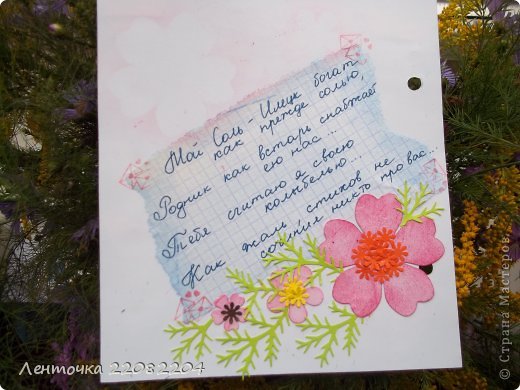 Мой Соль-Илецк богат
как прежде солью,
Родник как встарь снабжает
ею нас...
Тебя считаю я своею
колыбелью...
Как жаль, стихов не
сочинил никто про вас...
Ленточка 22082204
© Страна Мастеров